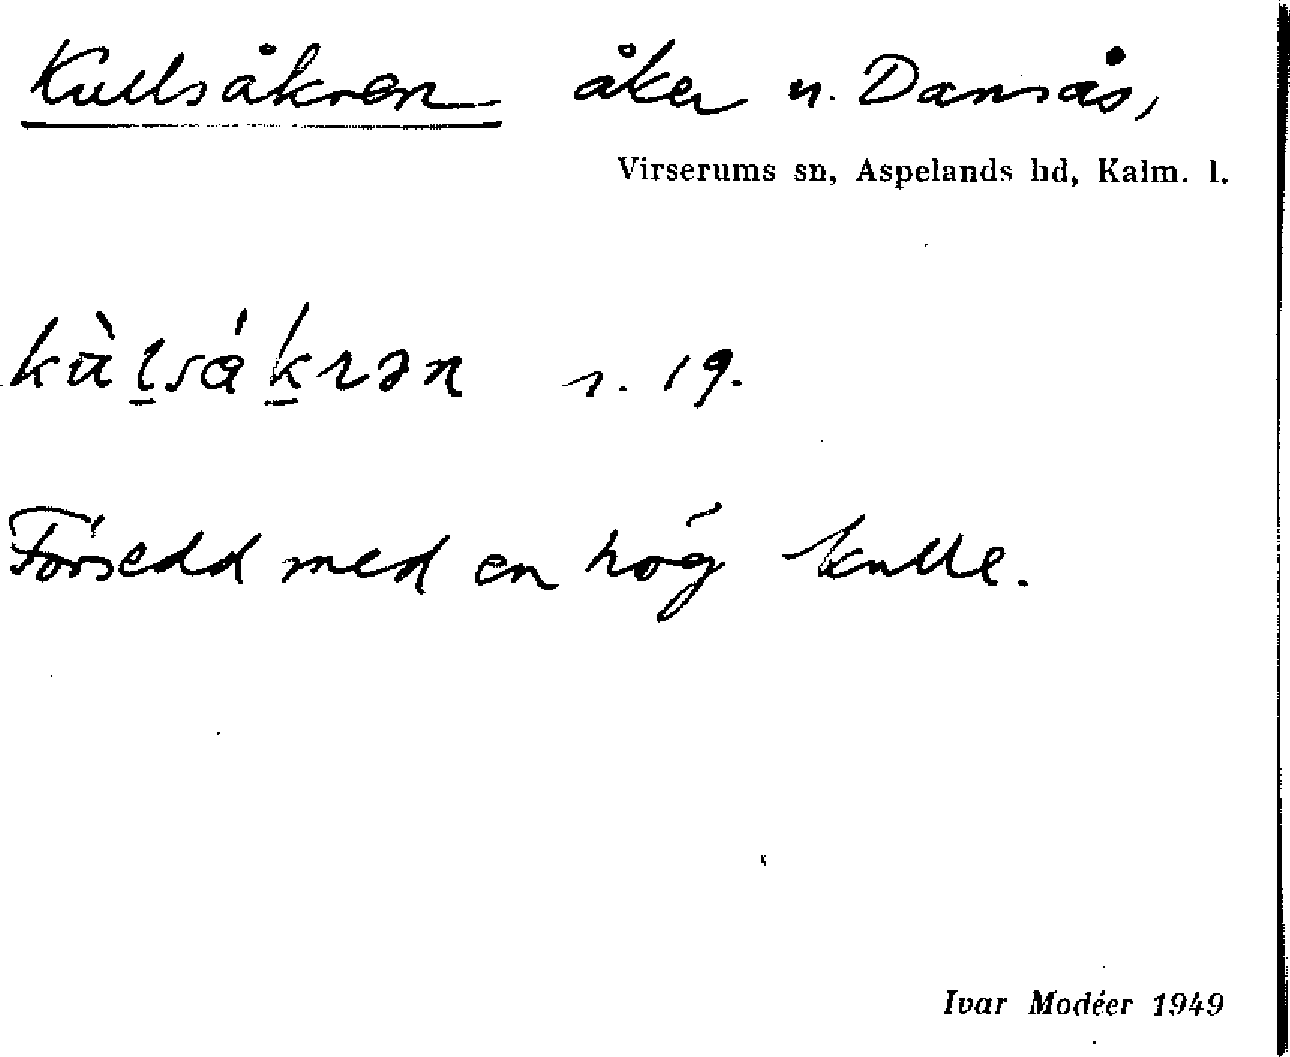 Kullsåkren åker u. Dansås,
Virserums sn, Aspelands hd, Kalm. l.
kùl̠sákrən s. 19.
Försedd med en hög kulle.
Ivar Modéer 1949